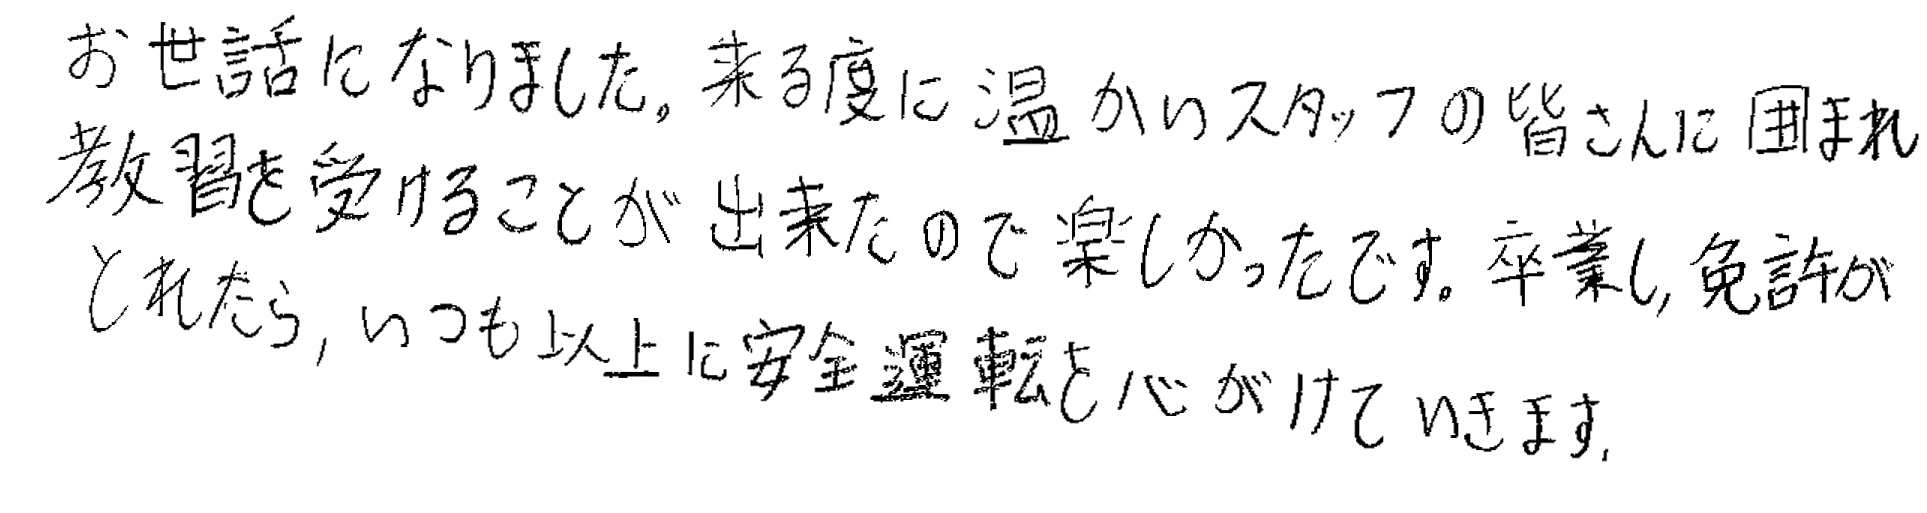 お世話になりました。来る度に温かいスタッフの皆さんに囲まれ
教習を受けることが出来たので楽しかったです。卒業し,免許が
とれたら,いつも以上に安全運転を心がけていきます.